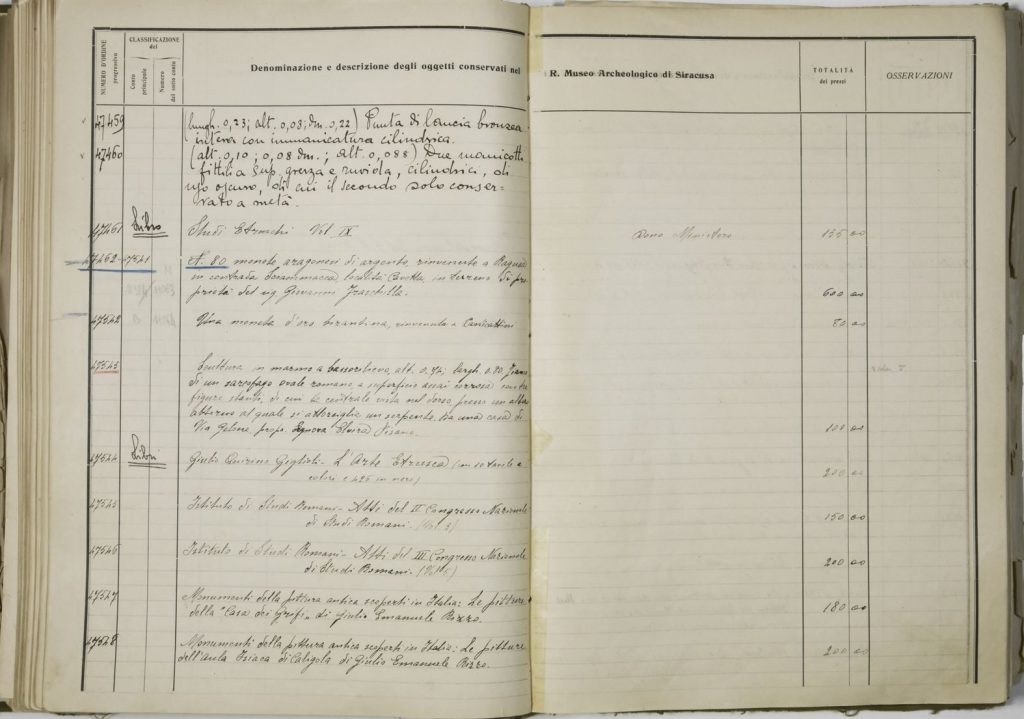 NUMERO D'ORDINE progressivo
CLASSIFICAZIONE del
Conto principale
Numero del sotto conto
Denominazione e descrizione degli oggetti conservati nel R. Museo Archeologico di Siracusa
TOTALITÀ dei prezzi
OSSERVAZIONI
47459 (lungh. 0,23; alt. 0,03; dm. 0,22) Punta di lancia bronzea
intera con immanicatura cilindrica.
47460 (alt. 0,10; 0,08 dm.; alt. 0,088) Due manicotti
fittili a sup. grezza e ruvida, cilindrici, di
uso oscuro, di cui il secondo solo conser-
vato a metà.
47461 Libro Studi Etruschi Vol. IX Dono Ministero 135 00
47462-47541 N. 80 monete aragonesi di argento, rinvenute a Ragusa
in contrada località in terreno di pro
prietà del sig. Giovanni
600 00
47542 Una moneta d'oro bizantina, rinvenuta a Canicattini 80 00
47543 Scultura in marmo a bassorilievo, alt. 0.74; largh. 0.80
di un sarcofago ovale romano, a superficie assai corrosa con tre
figure stanti, di cui la centrale vista nel dorso, presso un albero
attorno al quale si attorciglia un serpente. Da una casa di
Via Gelone, propr. Signora Elvira Pisano 100 00
47544 Libri Giulio Quirino Giglioli - L'Arte Etrusca (con tavole a
colori e 425 in nero) 200 00
47545 Istituto di Studi Romani - Atti del II Congresso Nazionale
di Studi Romani. (Vol. 3) 150 00
47546 Istituto di Studi Romani - Atti del III Congresso Nazionale
di Studi Romani. (Vol. 5) 200 00
47547 Monumenti della pittura antica scoperti in Italia: Le pitture
della "Casa dei Grifi" di Giulio Emanuele Rizzo. 180 00
47548 Monumenti della pittura antica scoperti in Italia: Le pitture
dell'Aula Isiaca di Caligola di Giulio Emanuele Rizzo. 200 00